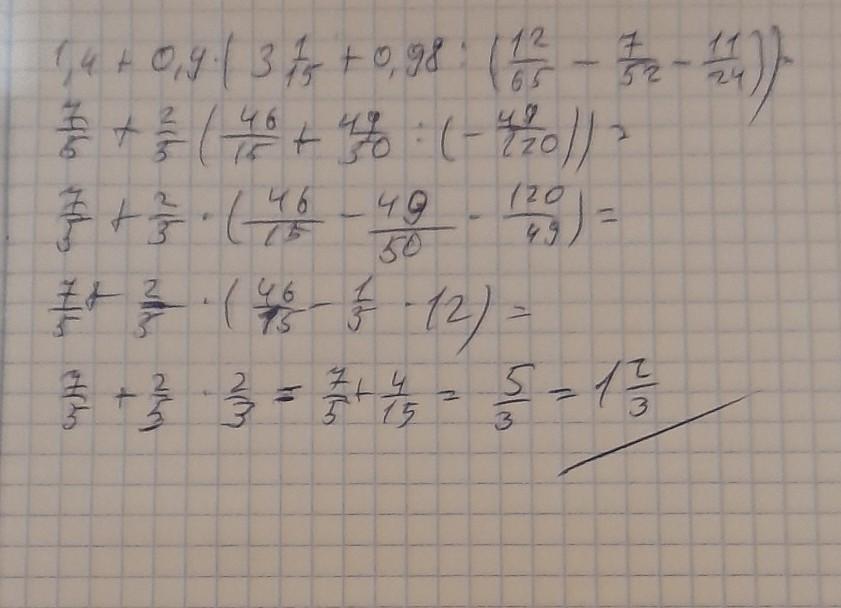 1,4 + 0,4 · ( 3 1/15 + 0,98 : ( 12/65 − 7/52 − 11/24 ) ) =
7/5 + 2/5 ( 46/15 + 49/50 : ( − 49/120 ) ) =
7/5 + 2/5 · ( 46/15 − 49/50 · 120/49 ) =
7/5 + 2/5 · ( 46/15 − 1/5 · 12 ) =
7/5 + 2/5 · 2/3 = 7/5 + 4/15 = 5/3 = 1 2/3